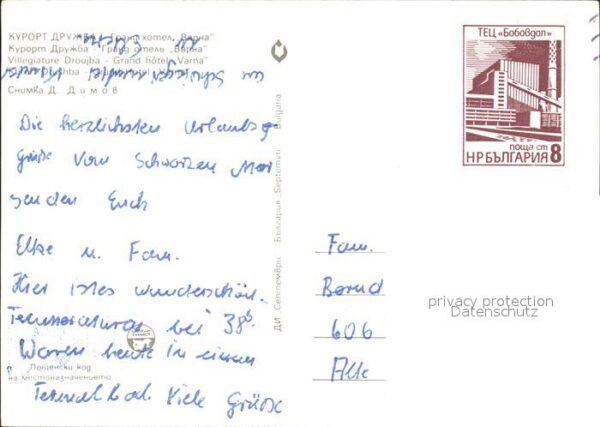 КУРОРТ ДРУЖБА – Гранд хотел „Варна"
Курорт Дружба – Гранд отель „Варна"
Villegiature Droujba – Grand hôtel „Varna"
Снимка Д. Димов
Die herzlichsten Urlaubs
grüße vom Schwarzen Meer
senden Euch
Elke u. Fam.
Hier ist es wunderschön.
Temperaturen bei 38°.
Waren heute in einem
Termalbad. Viele Grüße
Пощенски код
на местоназначението
ДИ Септември България Septemvri Bulgaria
ТЕЦ «Бобовдол»
поща ст
НРБЪЛГАРИЯ 8
Fam.
Bernd
606
Alte
privacy protection
Datenschutz